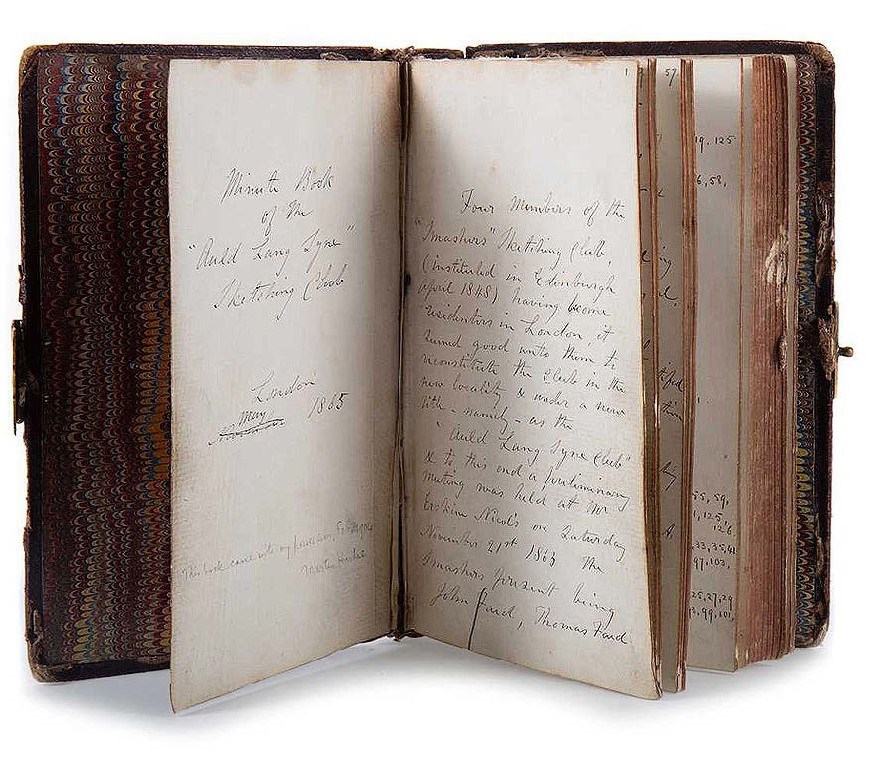 Minute Book
of the
"Auld Lang Syne"
Sketching Club
London
May 1865
This book came into my possession,
Four Members of the
"Smashers" Sketching Club,
(instituted in Edinburgh
April 1848) having become
residenters in London, it
seemed good unto them to
reconstitute the Club in the
new locality & under a new
title - namely - as the
"Auld Lang Syne Club"
& to this end a preliminary
meeting was held at Mr
Erskine Nicol's on Saturday
November 21st 1863 The
Smashers present being
John Faed, Thomas Faed
1
57
19, 125
6, 58,
55, 59,
1, 125,
126
33, 35, 41
97, 103,
25, 27, 29
99, 101,